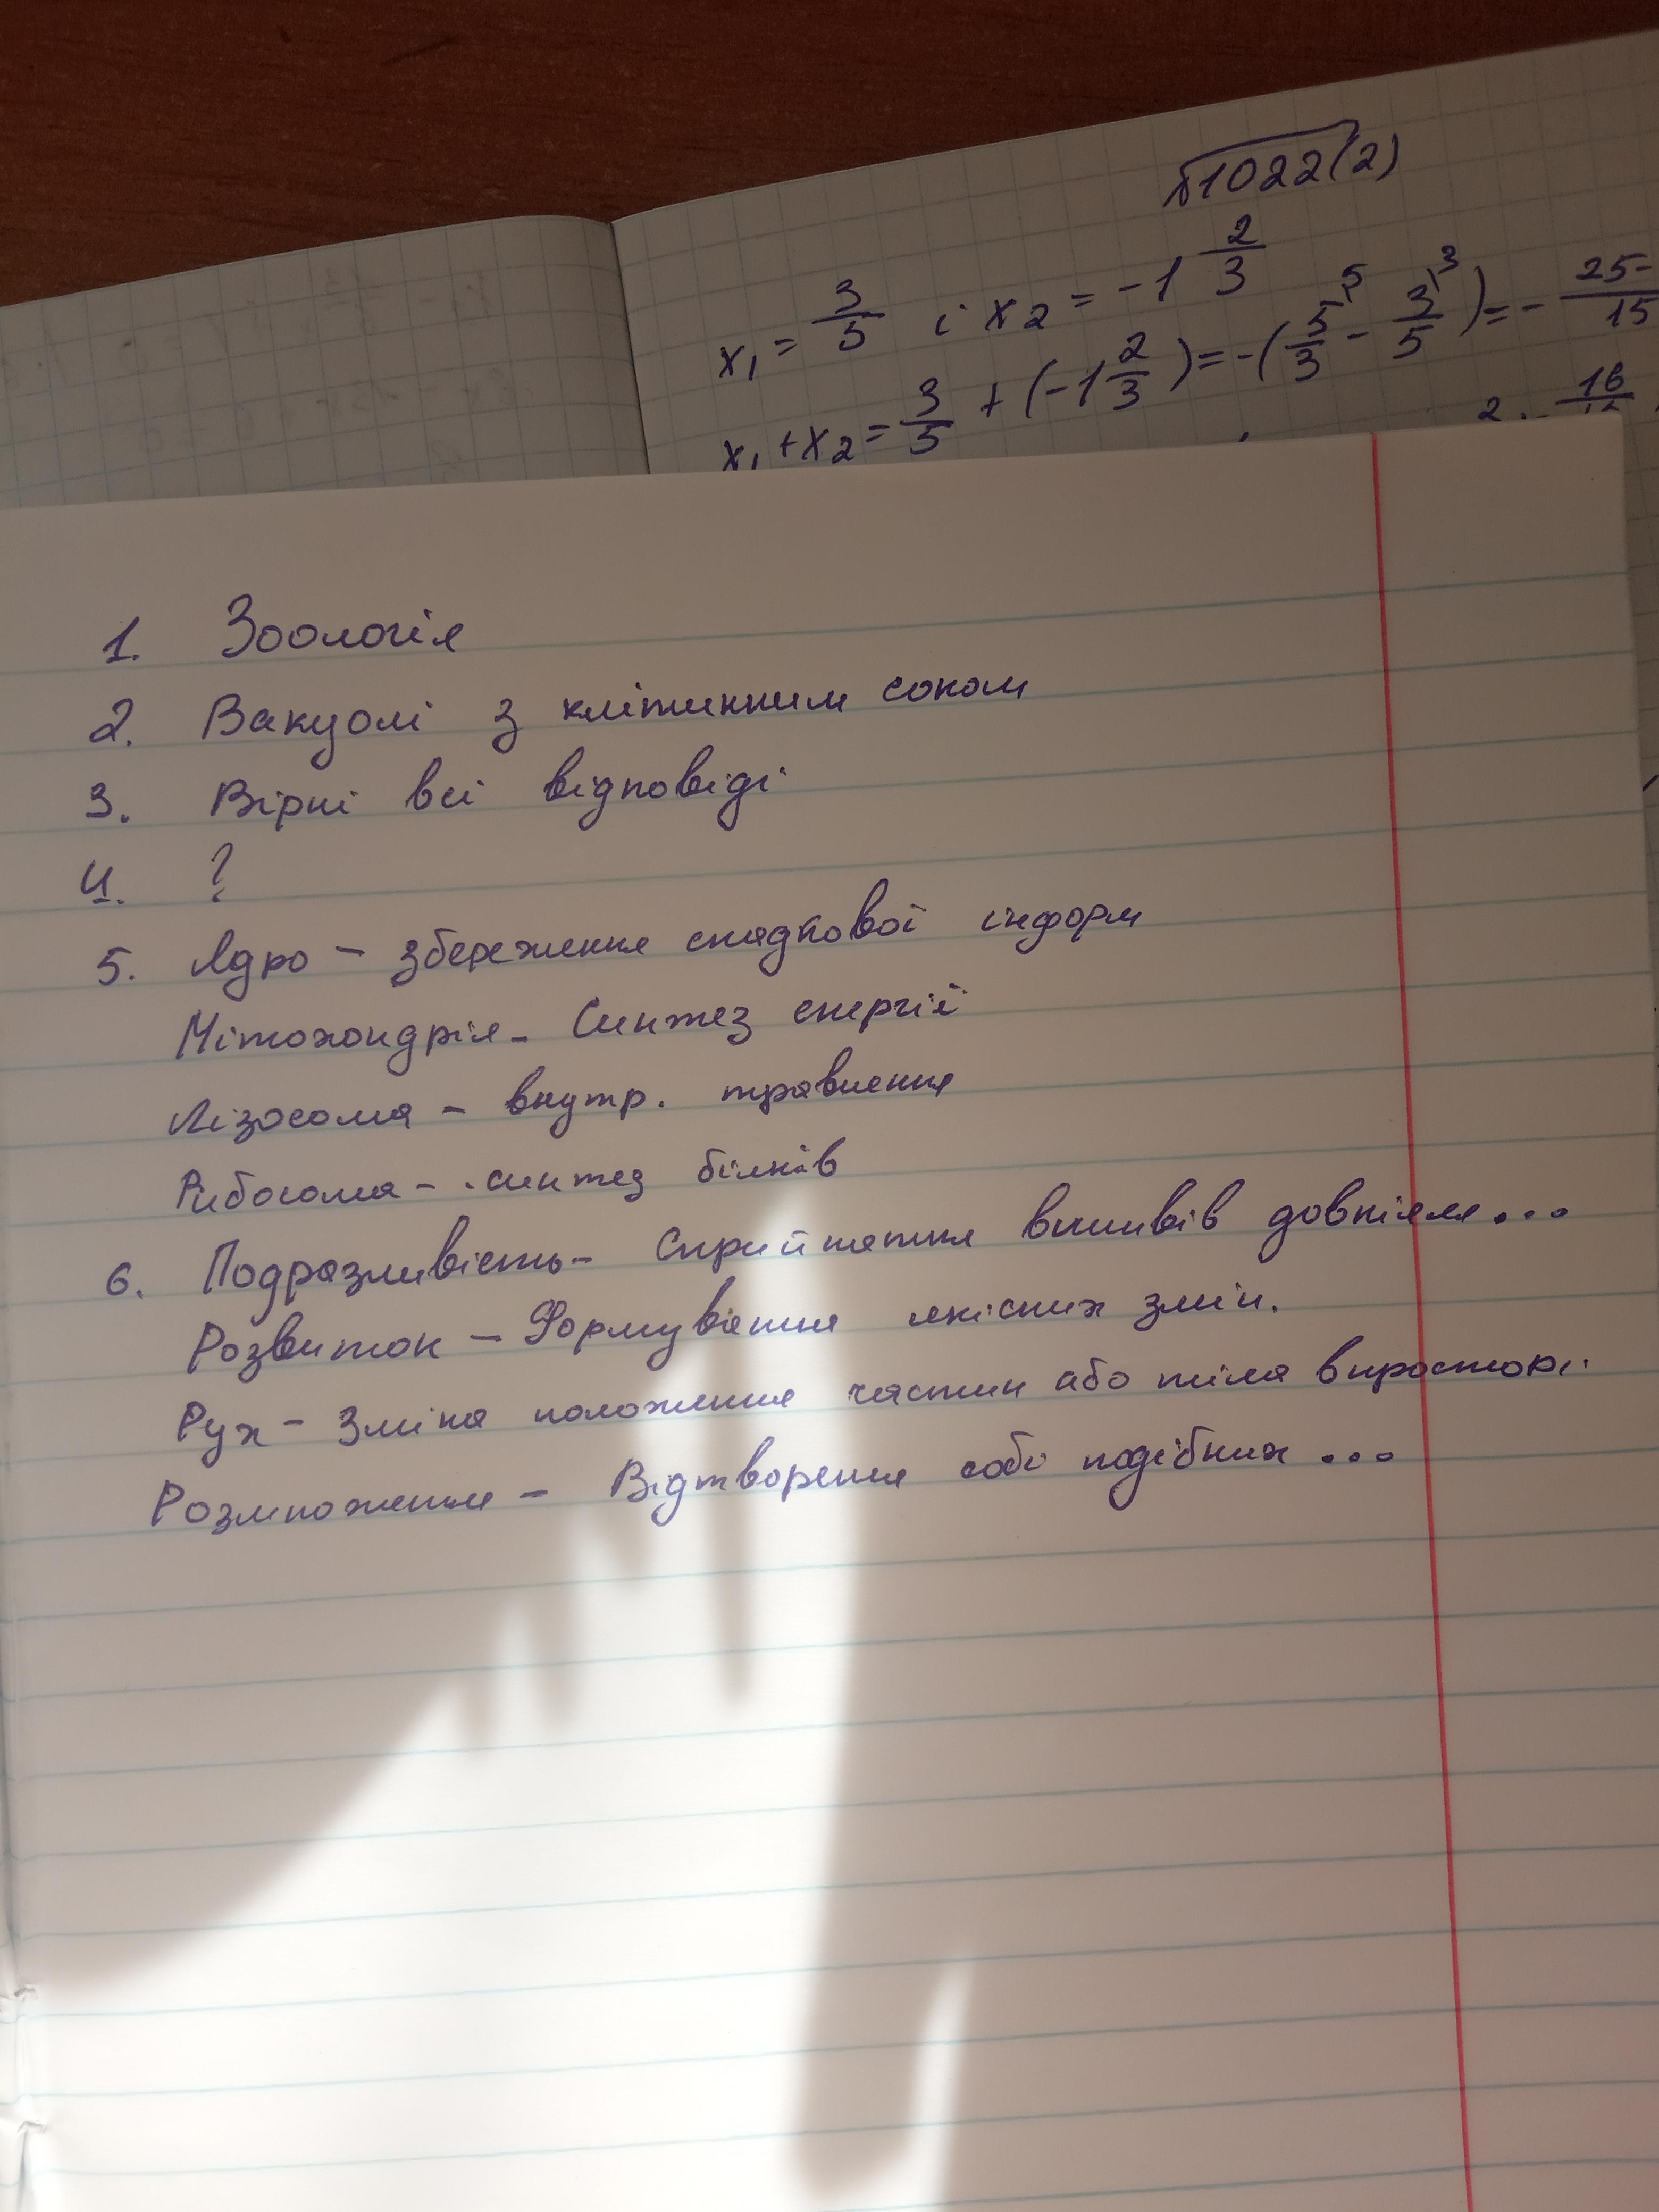 №1022(2)
x₁ = 3/5 і x₂ = -1 2/3
x₁ + x₂ = 3/5 + (-1 2/3) = -(5/3 ⁵ - 3/5 ³) = - 25-/15
2. - 16
1. Зоологія
2. Вакуолі з клітинним соком
3. Вірні всі відповіді
4. ?
5. Ядро - збереження спадкової інформ
Мітохондрія - Синтез енергії
Лізосома - внутр. травлення
Рибосома - синтез білків
6. Подразливість - Сприйняття впливів довкілля...
Розвиток - Формування якісних змін.
Рух - Зміна положення частин або тіла в просторі.
Розмноження - Відтворення собі подібних ...